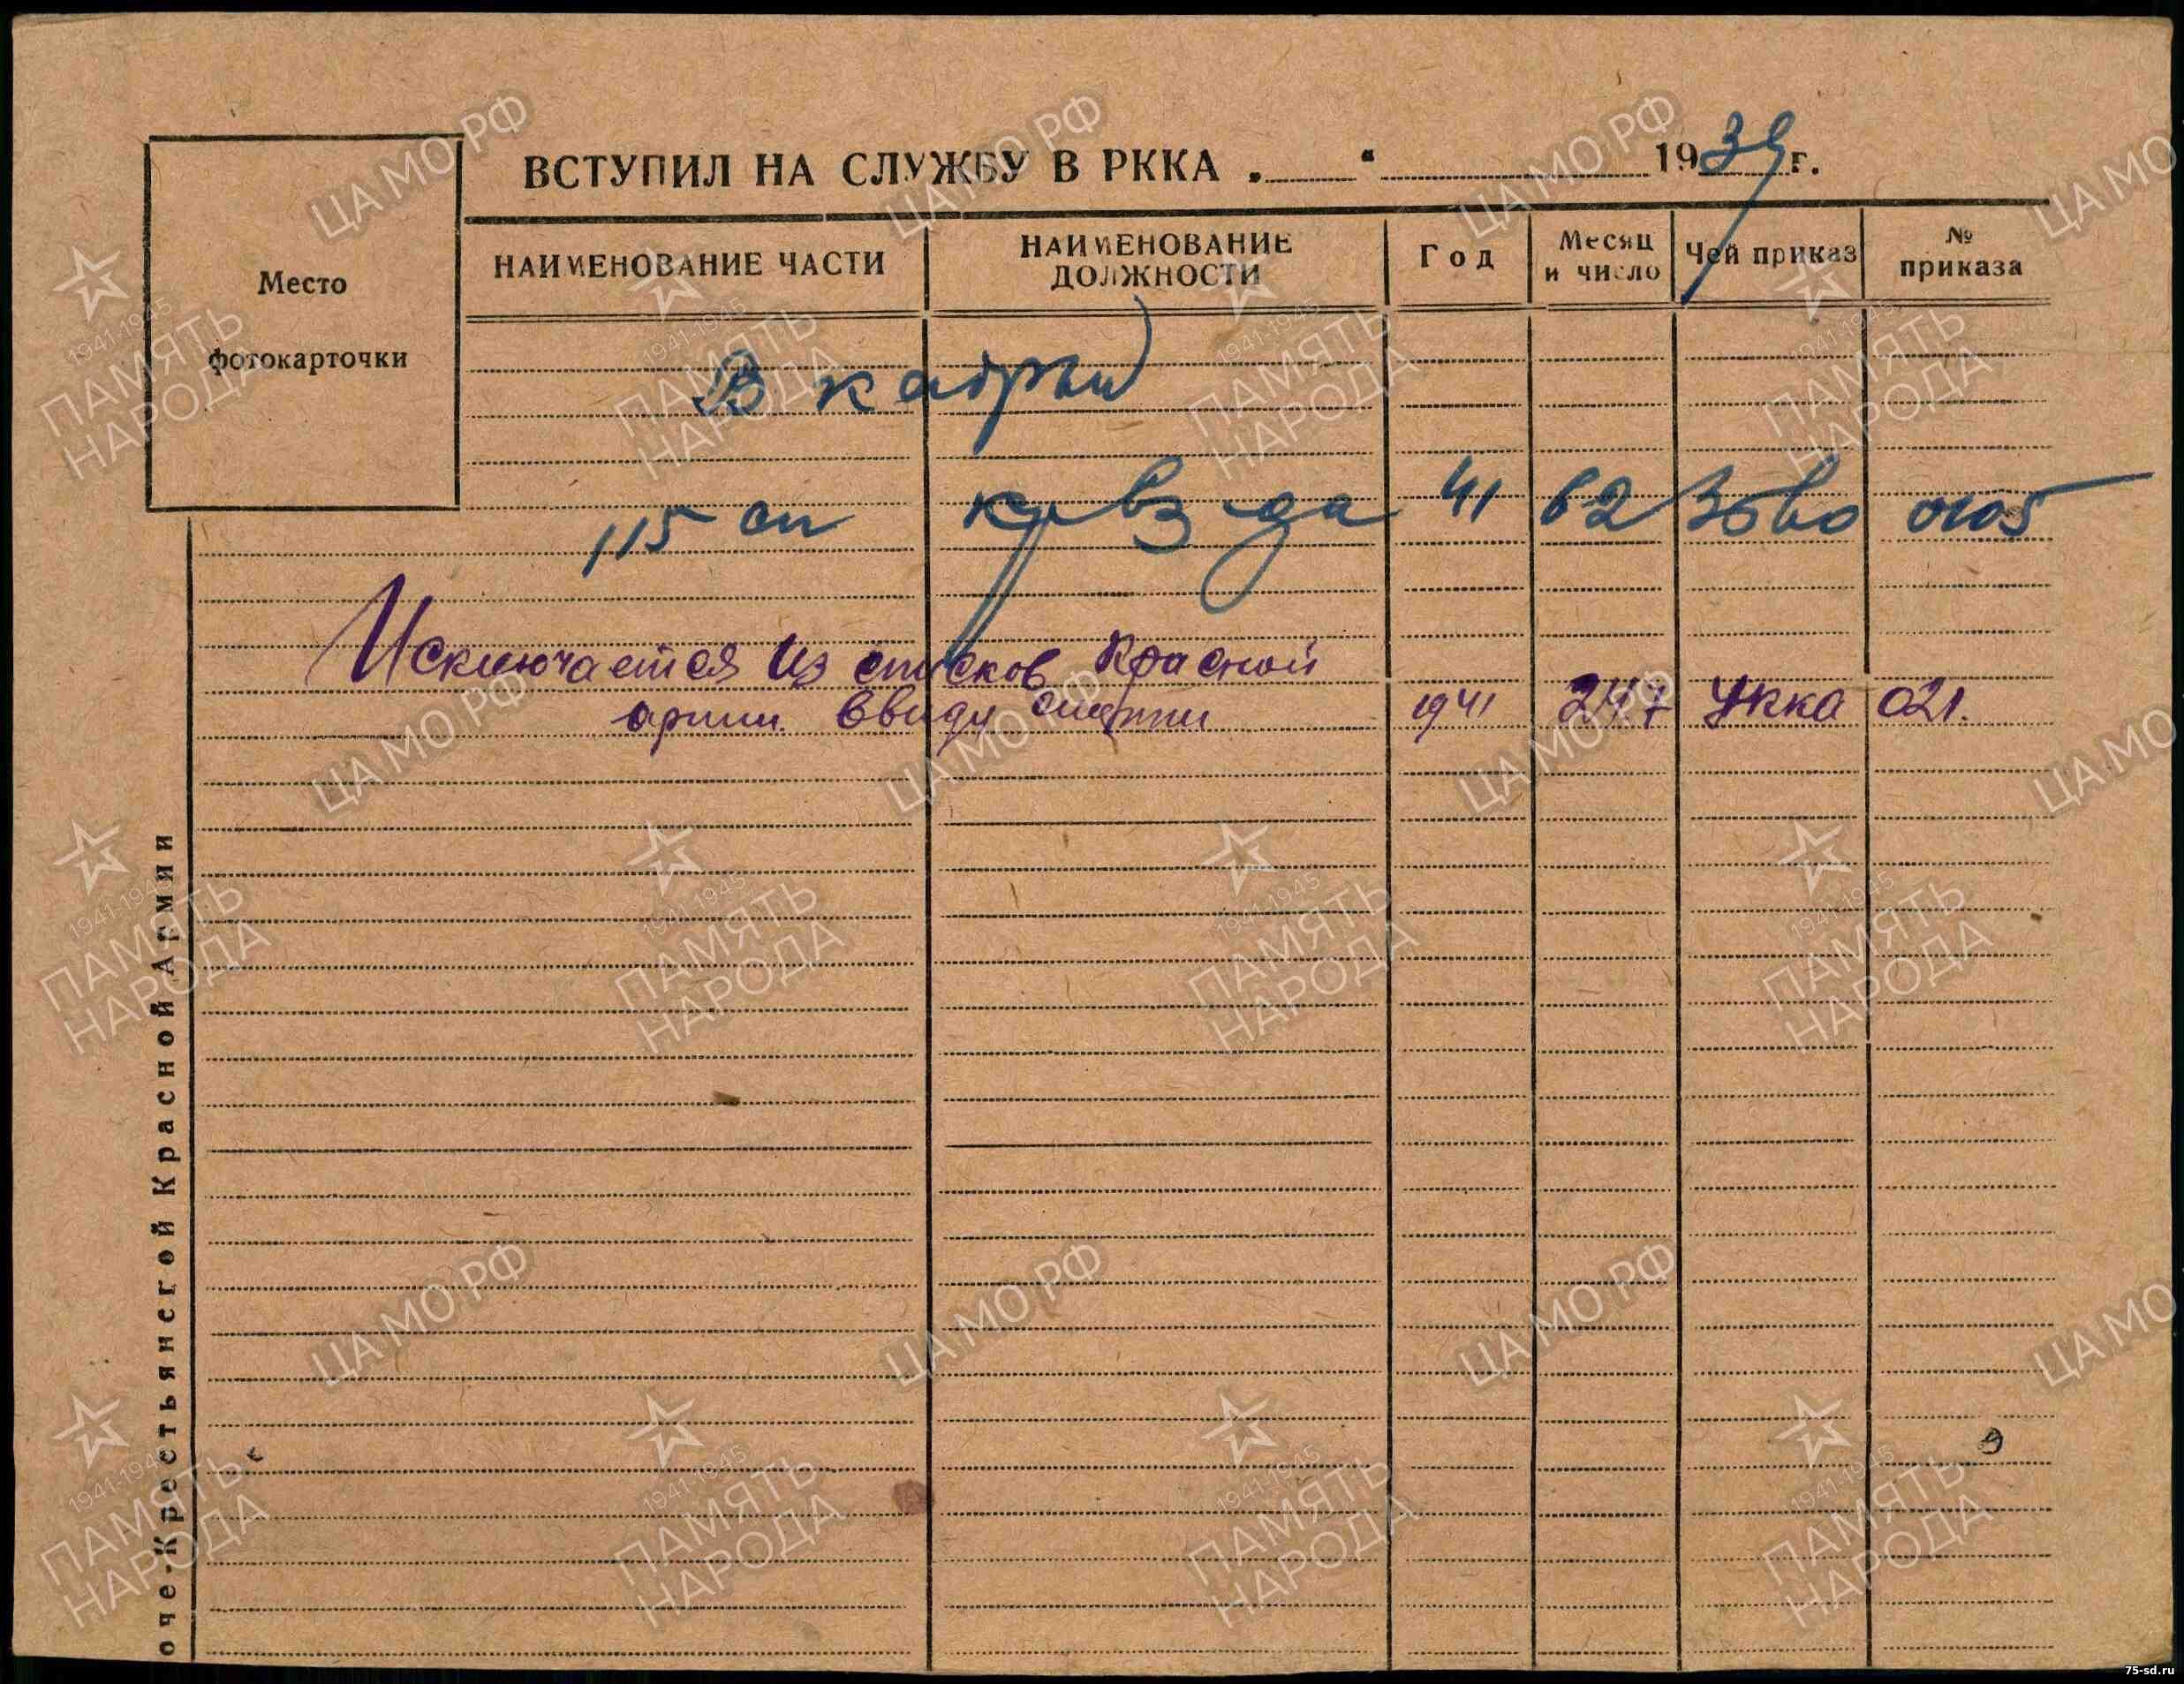 ВСТУПИЛ НА СЛУЖБУ В РККА „ “ 1939 г.
Место
фотокарточки
НАИМЕНОВАНИЕ ЧАСТИ
НАИМЕНОВАНИЕ
ДОЛЖНОСТИ
Год
Месяц
и число
Чей приказ
№
приказа
В кадры
115 сп к-р взвода 41 Зово 0105
Исключается из списков Красной
армии ввиду смерти 1941 24.7 УККА 021.
оче-Крестьянсгой Красной Армии
ЦАМО РФ
1941-1945
ПАМЯТЬ
НАРОДА
75-sd.ru